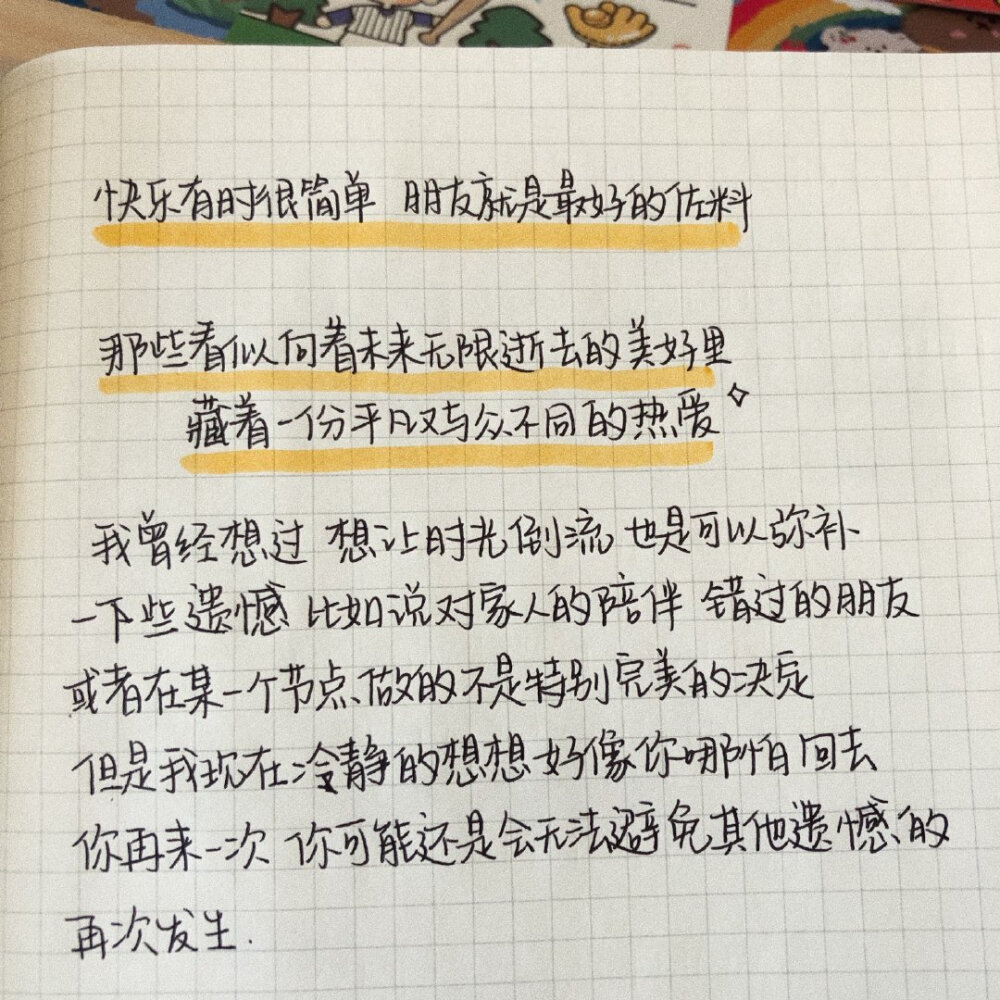 快乐有时很简单 朋友就是最好的佐料
那些看似向着未来无限逝去的美好里
藏着一份平凡又与众不同的热爱
我曾经想过 想让时光倒流 也是可以弥补
一下些遗憾 比如说对家人的陪伴 错过的朋友
或者在某一个节点做的不是特别完美的决定
但是我现在冷静的想想好像你哪怕回去
你再来一次 你可能还是会无法避免其他遗憾的
再次发生.